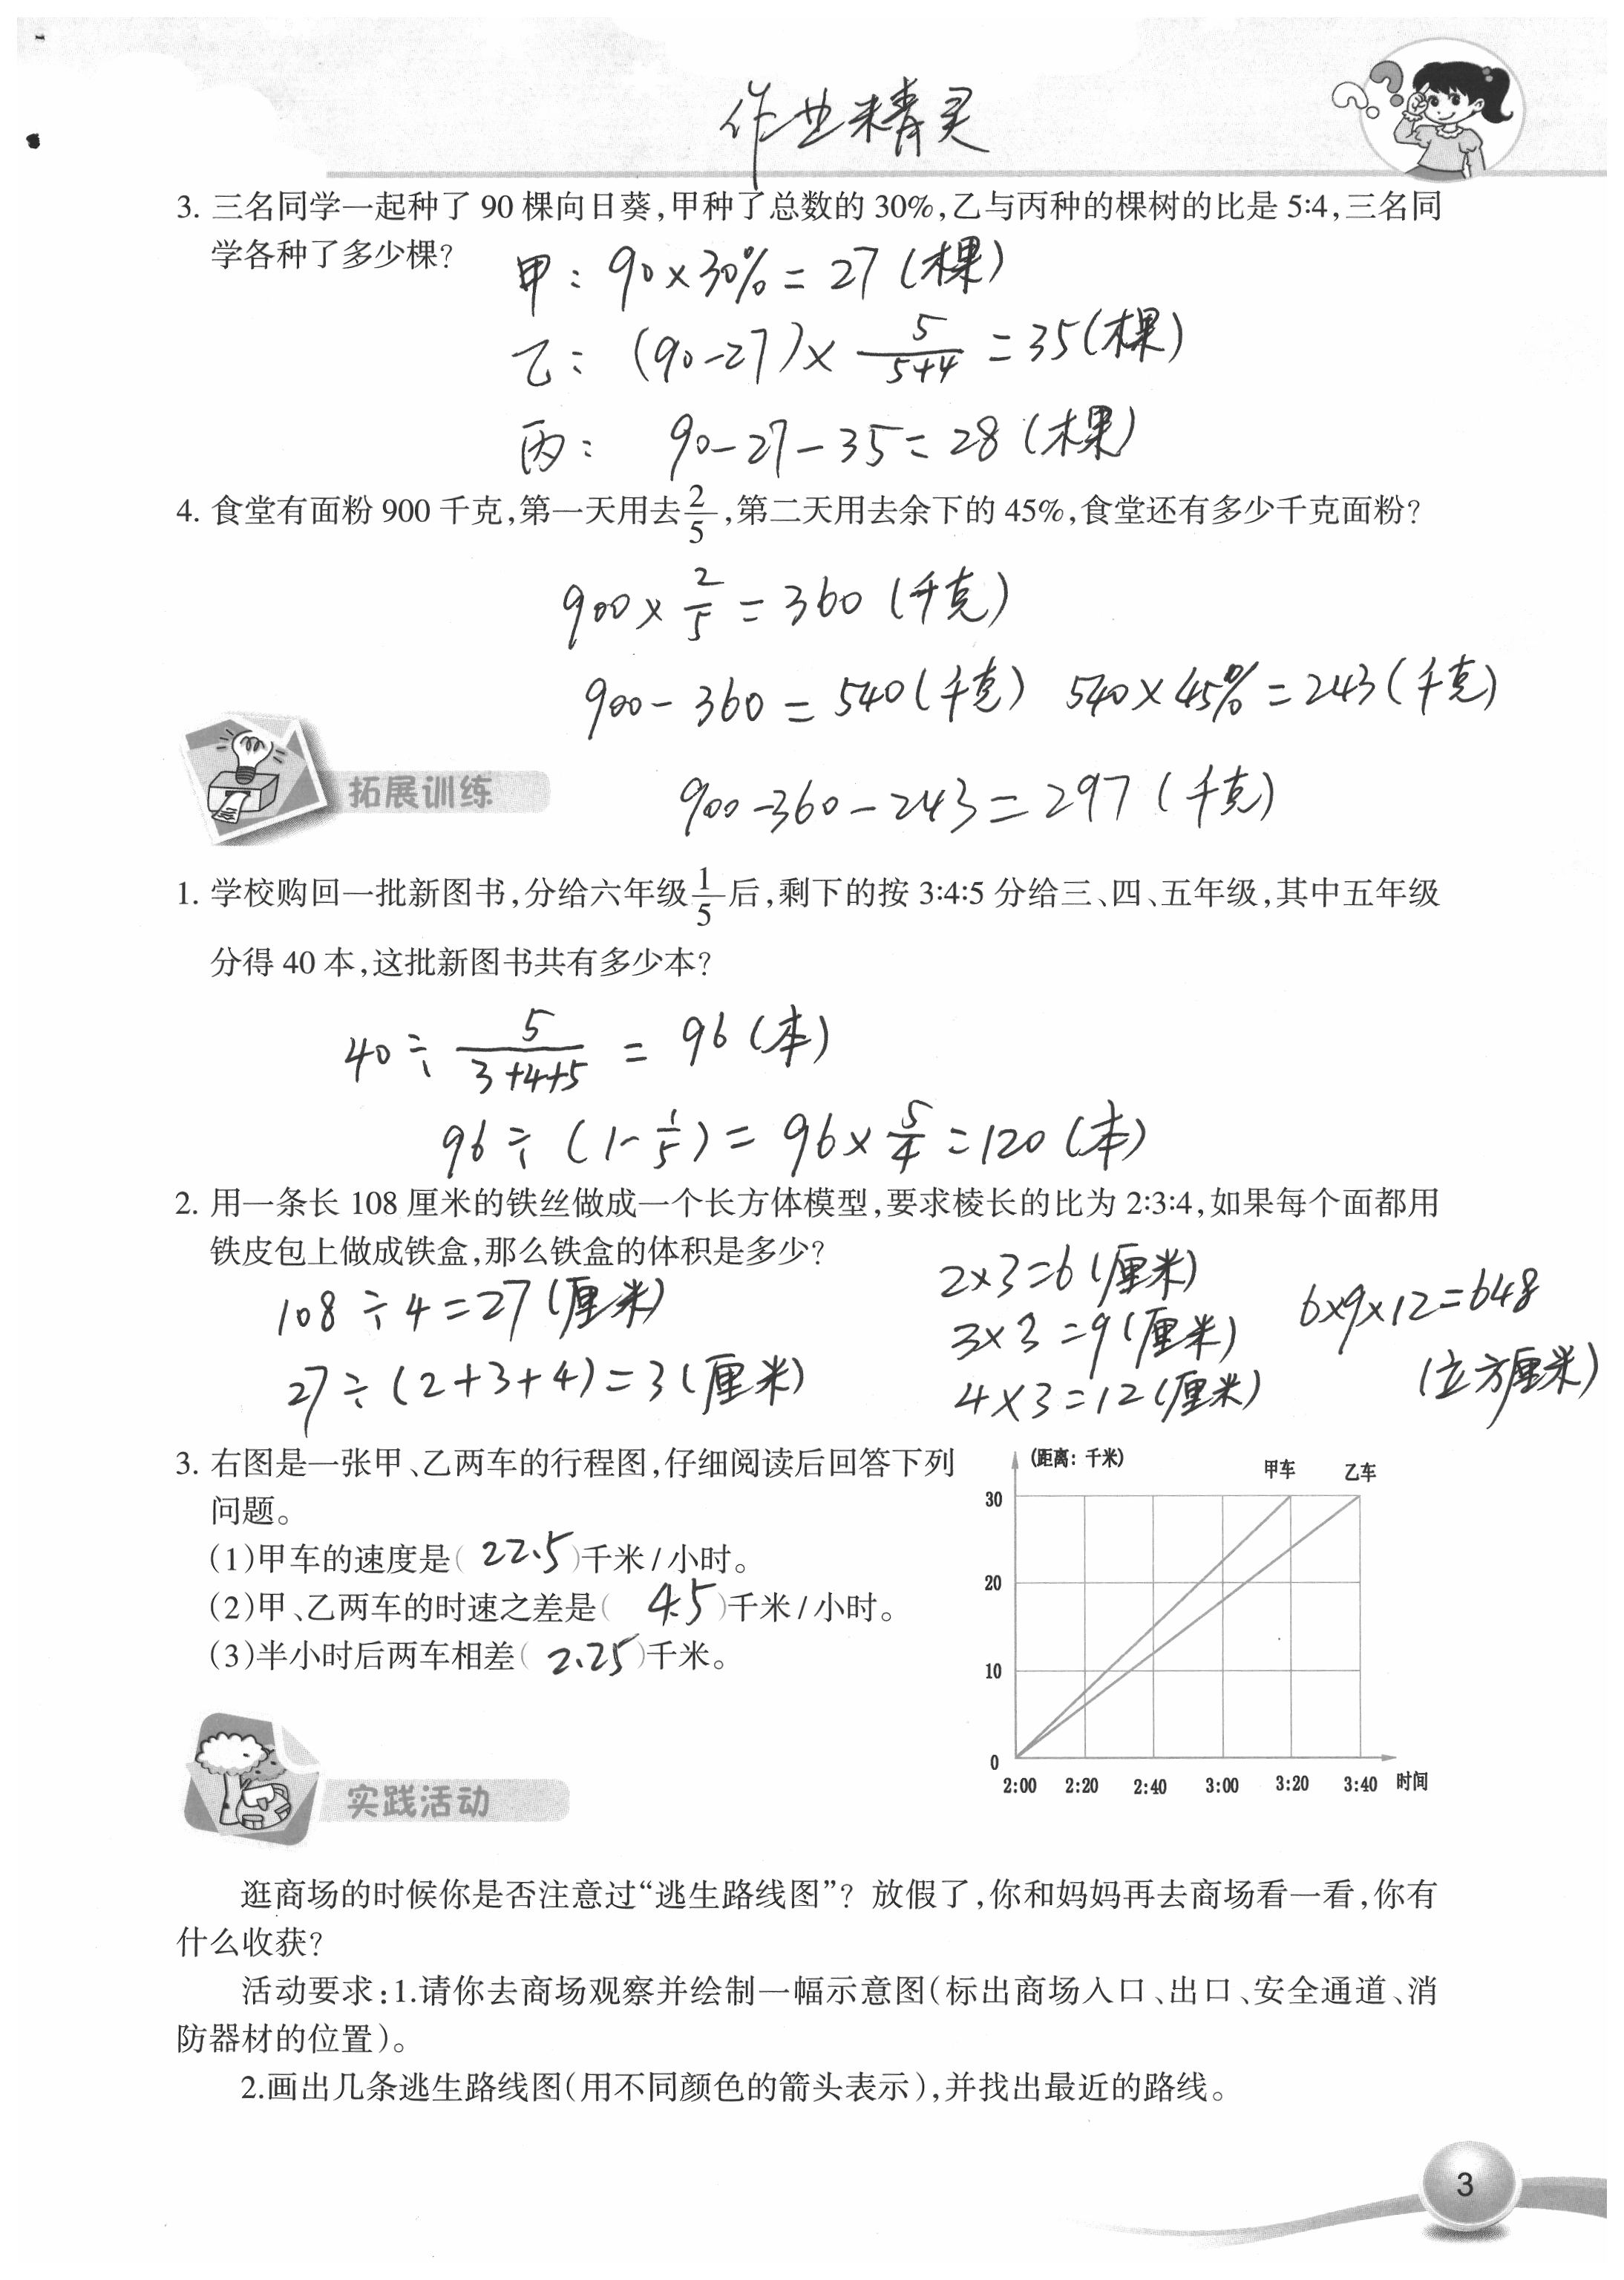 作业精灵
3. 三名同学一起种了 90 棵向日葵,甲种了总数的 30%,乙与丙种的棵树的比是 5:4,三名同
学各种了多少棵?
甲: 90×30%=27(棵)
乙: (90-27)×5/(5+4)=35(棵)
丙: 90-27-35=28(棵)
4. 食堂有面粉 900 千克,第一天用去2/5,第二天用去余下的 45%,食堂还有多少千克面粉?
900×2/5=360(千克)
900-360=540(千克) 540×45%=243(千克)
拓展训练
900-360-243=297(千克)
1. 学校购回一批新图书,分给六年级1/5后,剩下的按 3:4:5 分给三、四、五年级,其中五年级
分得 40 本,这批新图书共有多少本?
40÷5/(3+4+5)=96(本)
96÷(1-1/5)=96×5/4=120(本)
2. 用一条长 108 厘米的铁丝做成一个长方体模型,要求棱长的比为 2:3:4,如果每个面都用
铁皮包上做成铁盒,那么铁盒的体积是多少?
108÷4=27(厘米)
27÷(2+3+4)=3(厘米)
2×3=6(厘米)
3×3=9(厘米)
4×3=12(厘米)
6×9×12=648
(立方厘米)
3. 右图是一张甲、乙两车的行程图,仔细阅读后回答下列
问题。
(1)甲车的速度是( 22.5 )千米/小时。
(2)甲、乙两车的时速之差是( 4.5 )千米/小时。
(3)半小时后两车相差( 2.25 )千米。
(距离: 千米)
甲车 乙车
30
20
10
0
2:00 2:20 2:40 3:00 3:20 3:40 时间
实践活动
逛商场的时候你是否注意过“逃生路线图”? 放假了,你和妈妈再去商场看一看,你有
什么收获?
活动要求:1.请你去商场观察并绘制一幅示意图(标出商场入口、出口、安全通道、消
防器材的位置)。
2.画出几条逃生路线图(用不同颜色的箭头表示),并找出最近的路线。
3